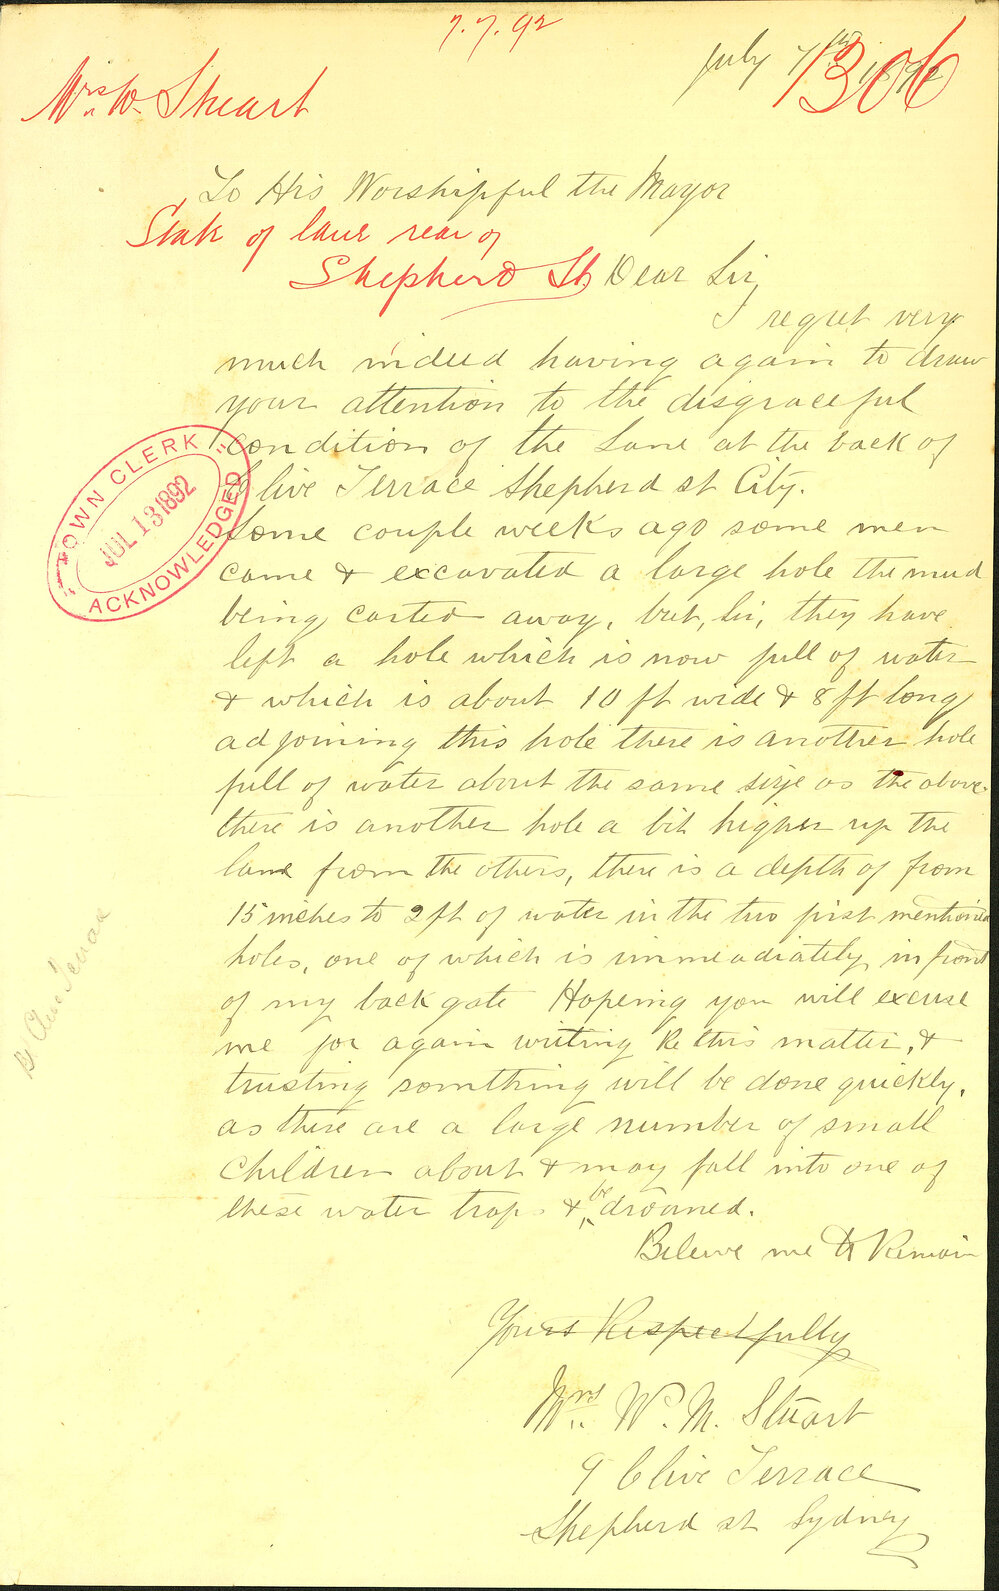 7.7.92
July 7th 1892
1306
Mrs W. Stuart
To His Worshipful the Mayor
State of lane rear of
Shepherd St.
Dear Sir,
I regret very
much indeed having again to draw
your attention to the disgraceful
condition of the Lane at the back of
Clive Terrace Shepherd st City.
TOWN CLERK
JUL 13 1892
ACKNOWLEDGED
Some couple weeks ago some men
came & excavated a large hole the mud
being carted away, but, Sir, they have
left a hole which is now full of water
& which is about 10 ft wide & 8 ft long
adjoining this hole there is another hole
full of water about the same size as the above.
there is another hole a bit higher up the
lane from the others, there is a depth of from
15 inches to 2 ft of water in the two first mentioned
holes, one of which is immeadiately in front
of my back gate Hopeing you will excuse
me for again writing Re this matter, &
trusting something will be done quickly,
as there are a large number of small
children about & may fall into one of
these water traps & be drowned.
Beleive me to Remain
Yours Respectfully
Mrs W. M. Stuart
9 Clive Terrace
Shepherd st Sydney